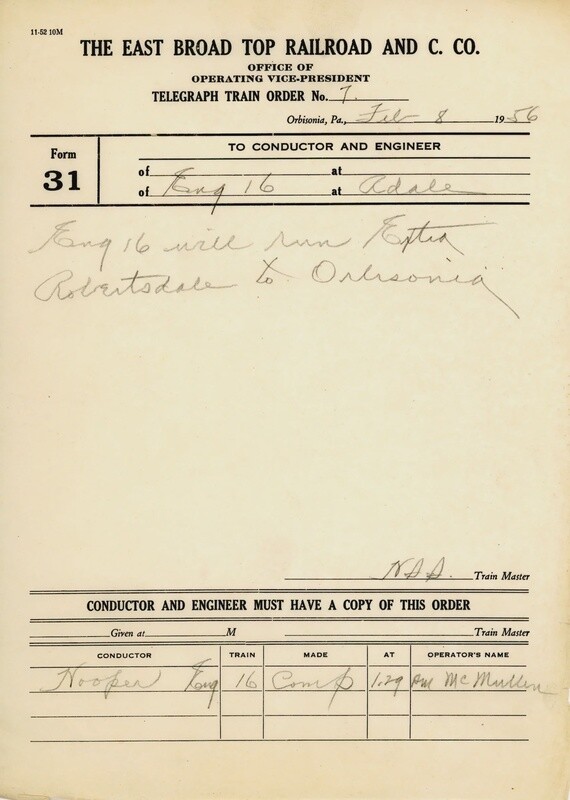 11-52 10M
THE EAST BROAD TOP RAILROAD AND C. CO.
OFFICE OF
OPERATING VICE-PRESIDENT
TELEGRAPH TRAIN ORDER No. 7.
Orbisonia, Pa., Feb 8 1956
Form
31
TO CONDUCTOR AND ENGINEER
of at
of Eng 16 at Adale
Eng 16 will run Extra
Robertsdale to Orbisonia
Train Master
CONDUCTOR AND ENGINEER MUST HAVE A COPY OF THIS ORDER
Given at M Train Master
CONDUCTOR TRAIN MADE AT OPERATOR'S NAME
Hooper Eng 16 Comp 1.29 PM McMullen